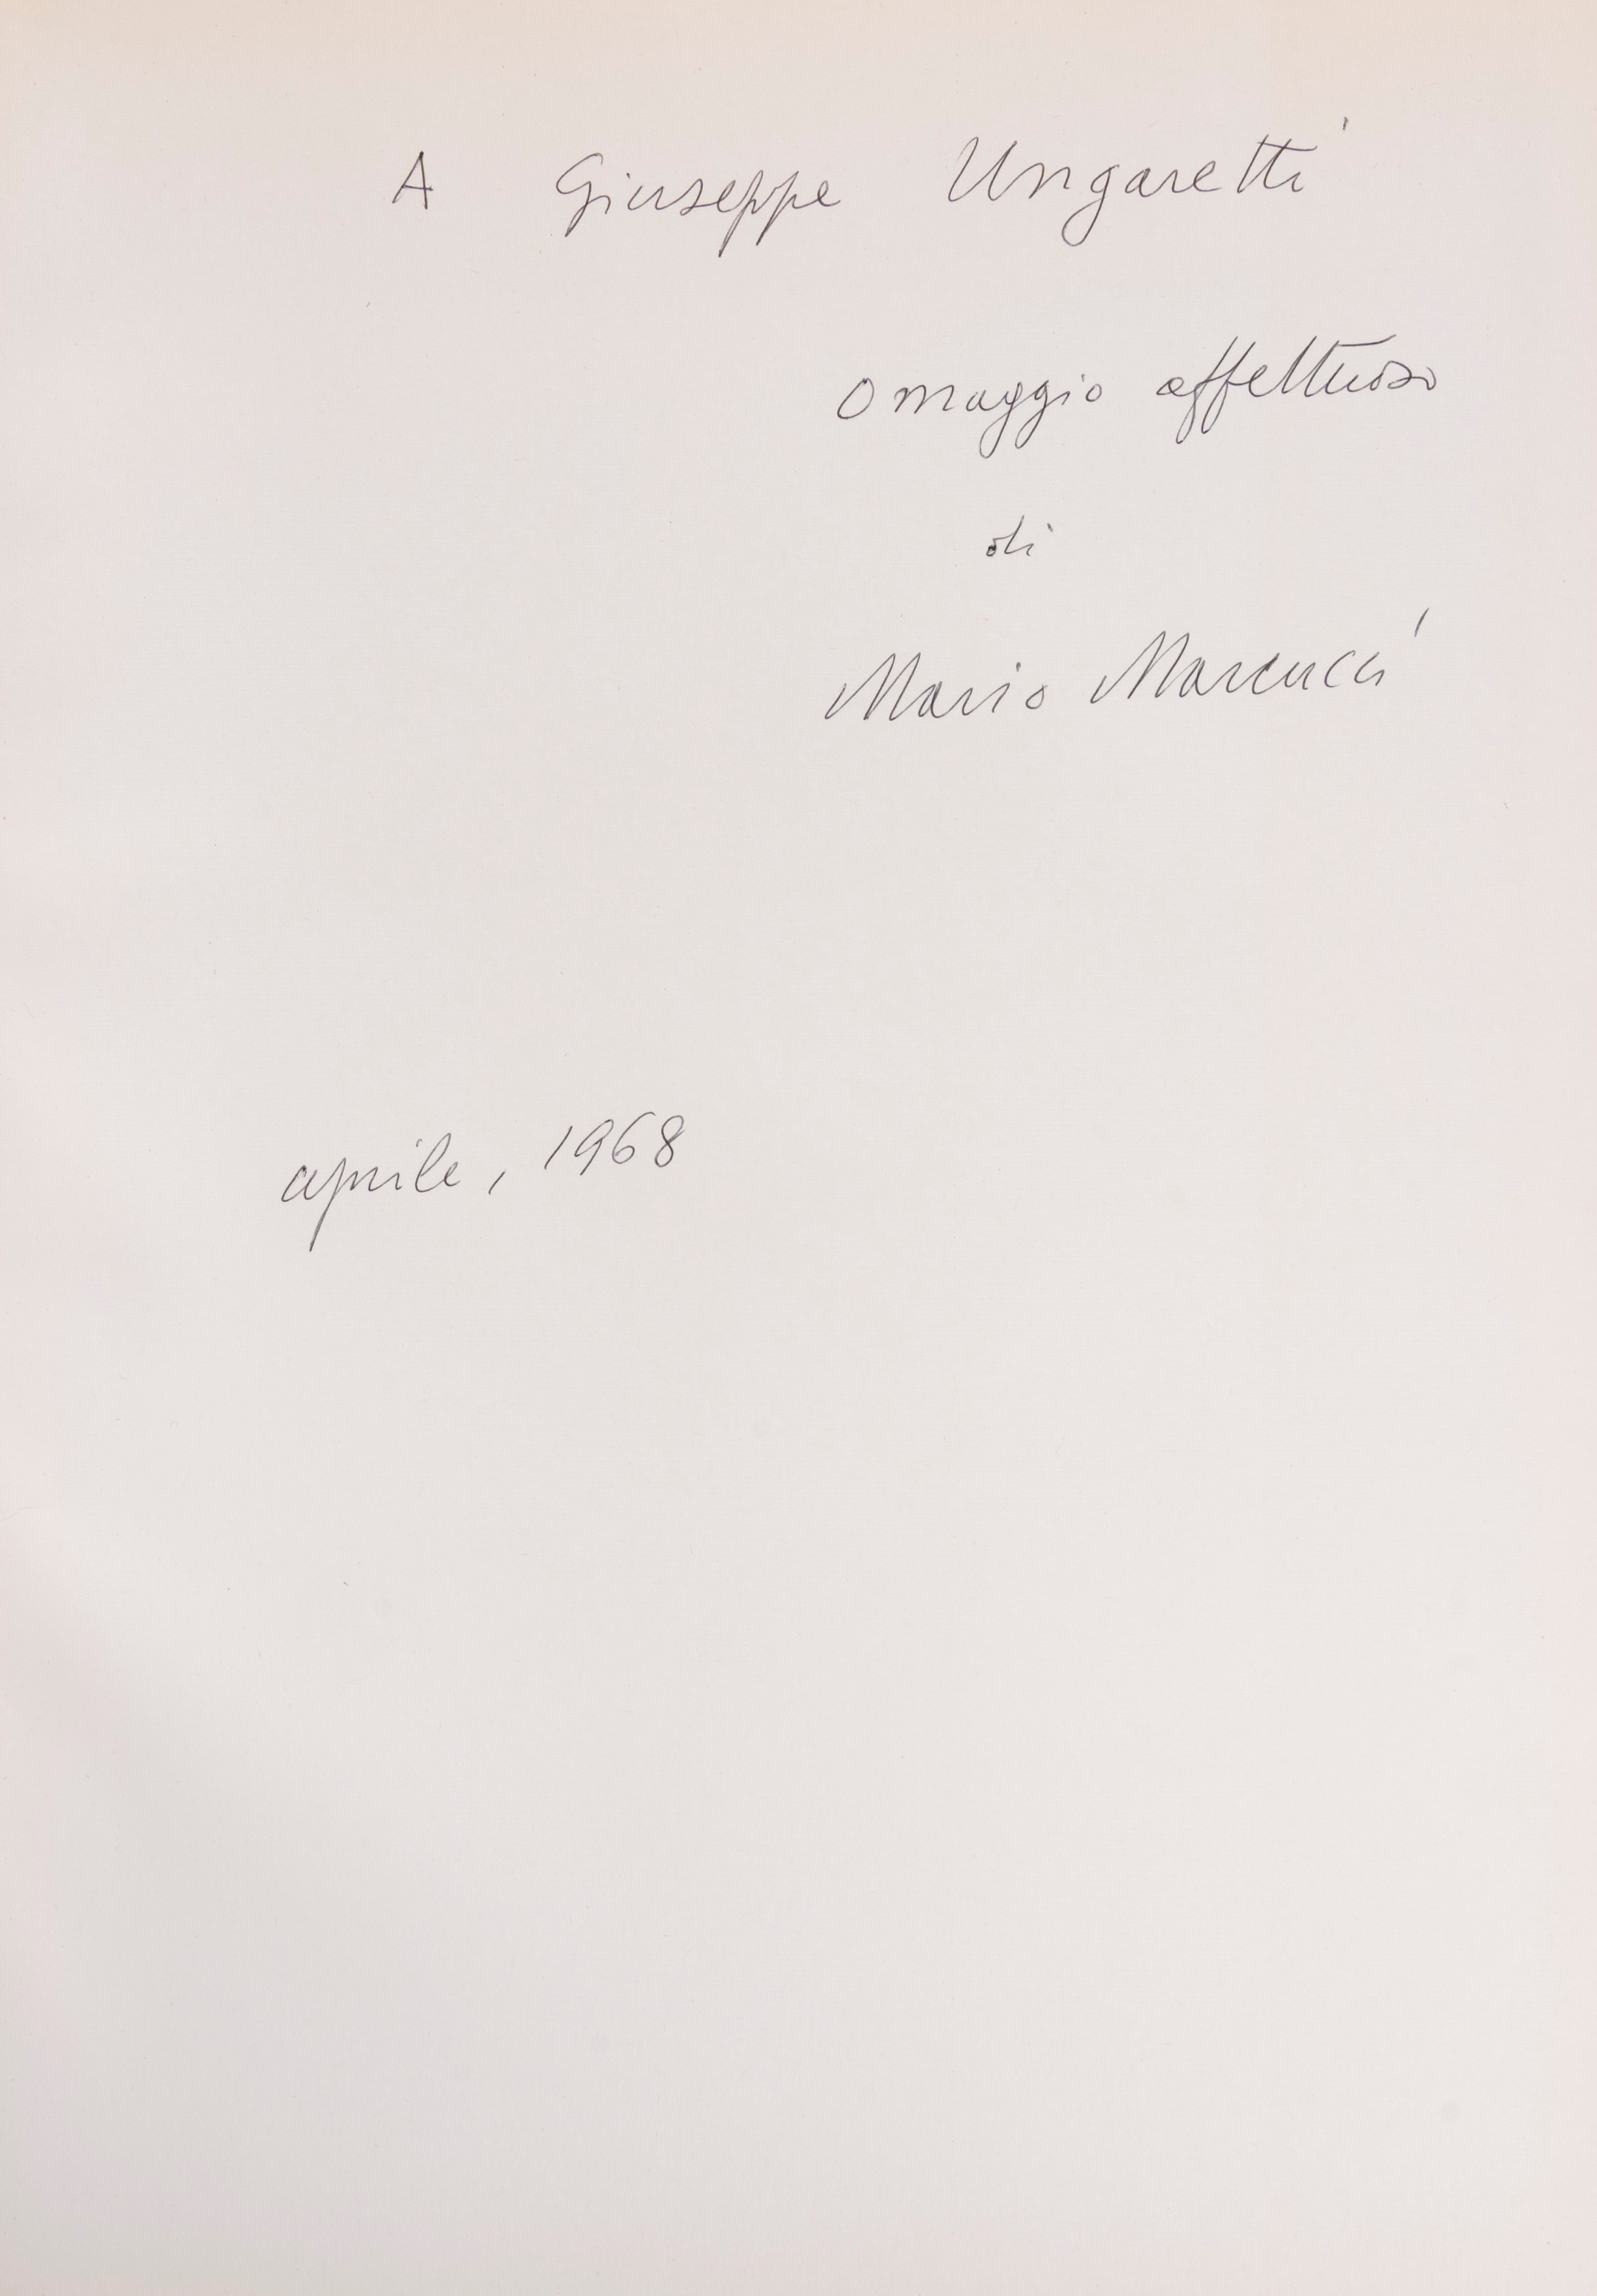 A Giuseppe Ungaretti
omaggio affettuoso
di
Mario Marcucci
aprile, 1968